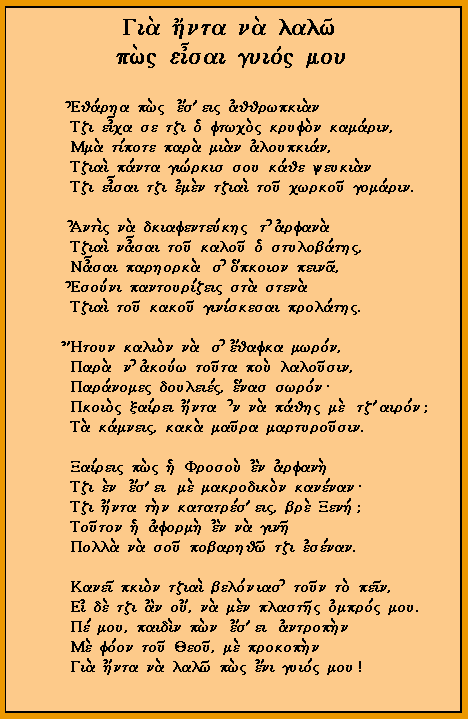 Γιὰ ἤντα νὰ λαλῶ
πὼς εἶσαι γυιός μου
Ἐθάρηα πὼς ἔσ̌εις ἀθθρωπκιὰν
Τζι εἶχα σε τζι ὁ φτωχὸς κρυφὸν καμάριν,
Μμὰ τίποτε παρὰ μιὰν ἀλουπκιάν,
Τζιαὶ πάντα γιώρκισ σου κάθε ψευκιὰν
Τζι εἶσαι τζι ἐμὲν τζιαὶ τοῦ χωρκοῦ γομάριν.
Ἀντὶς νὰ δκιαφεντεύκης τ᾽ ἀρφανὰ
Τζιαὶ νἆσαι τοῦ καλοῦ ὁ στυλοβάτης,
Νἆσαι παρηορκὰ σ᾽ ὅπκοιον πεινᾶ,
Ἐσούνι παντουρίζεις στὰ στενὰ
Τζιαὶ τοῦ κακοῦ γινίσκεσαι προλάτης.
Ἤτουν καλιὸν νὰ σ᾽ ἔθαφκα μωρόν,
Παρὰ ν᾽ ἀκούω τοῦτα ποὺ λαλοῦσιν,
Παράνομες δουλειές, ἕνασ σωρόν·
Πκοιὸς ξαίρει ἤντα ᾽ν νὰ πάθης μὲ τζ᾽ αιρόν;
Τὰ κάμνεις, κακὰ μαῦρα μαρτυροῦσιν.
Ξαίρεις πὼς ἡ Φροσοὺ ἒν ἀρφανὴ
Τζι ἐν ἔσ̌ει μὲ μακροδικὸν κανέναν·
Τζι ἤντα τὴν κατατρέσ̌εις, βρὲ Ξενή;
Τοῦτον ἡ ἀφορμὴ ἒν νὰ γινῆ
Πολλὰ νὰ σοῦ ποβαρηθῶ τζι ἐσέναν.
Κανεῖ πκιὸν τζιαὶ βελόνιασ᾽ τοῦν τὸ πεῖν,
Εἰ δὲ τζι ἂν οὔ, νὰ μὲν πλαστῆς ὀμπρός μου.
Πέ μου, παιδὶν πὼν ἔσ̌ει ἀντροπὴν
Μὲ φόον τοῦ Θεοῦ, μὲ προκοπὴν
Γιὰ ἤντα νὰ λαλῶ πὼς ἔνι γυιός μου!